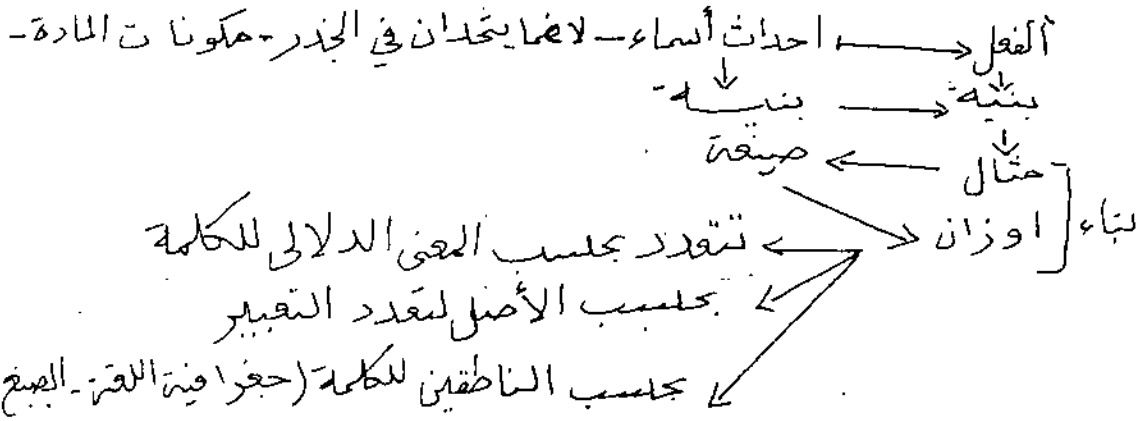 ألفعل احداث أسماء - لا نهما يتحدان في الجذر - مكونا ت المادة -
بنية بنية
مثال صيغة
بناء اوزان تتعدد بحسب المعنى الدلالي للكلمة
بحسب الأصل لتعدد التعبير
بحسب الناطقين للكلمة (جغرافية اللغة - الصيغ